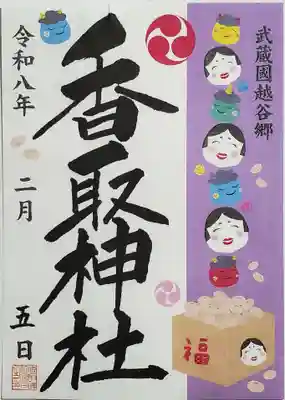 武蔵國越谷郷
香取神社
令和八年
二月
五日
福